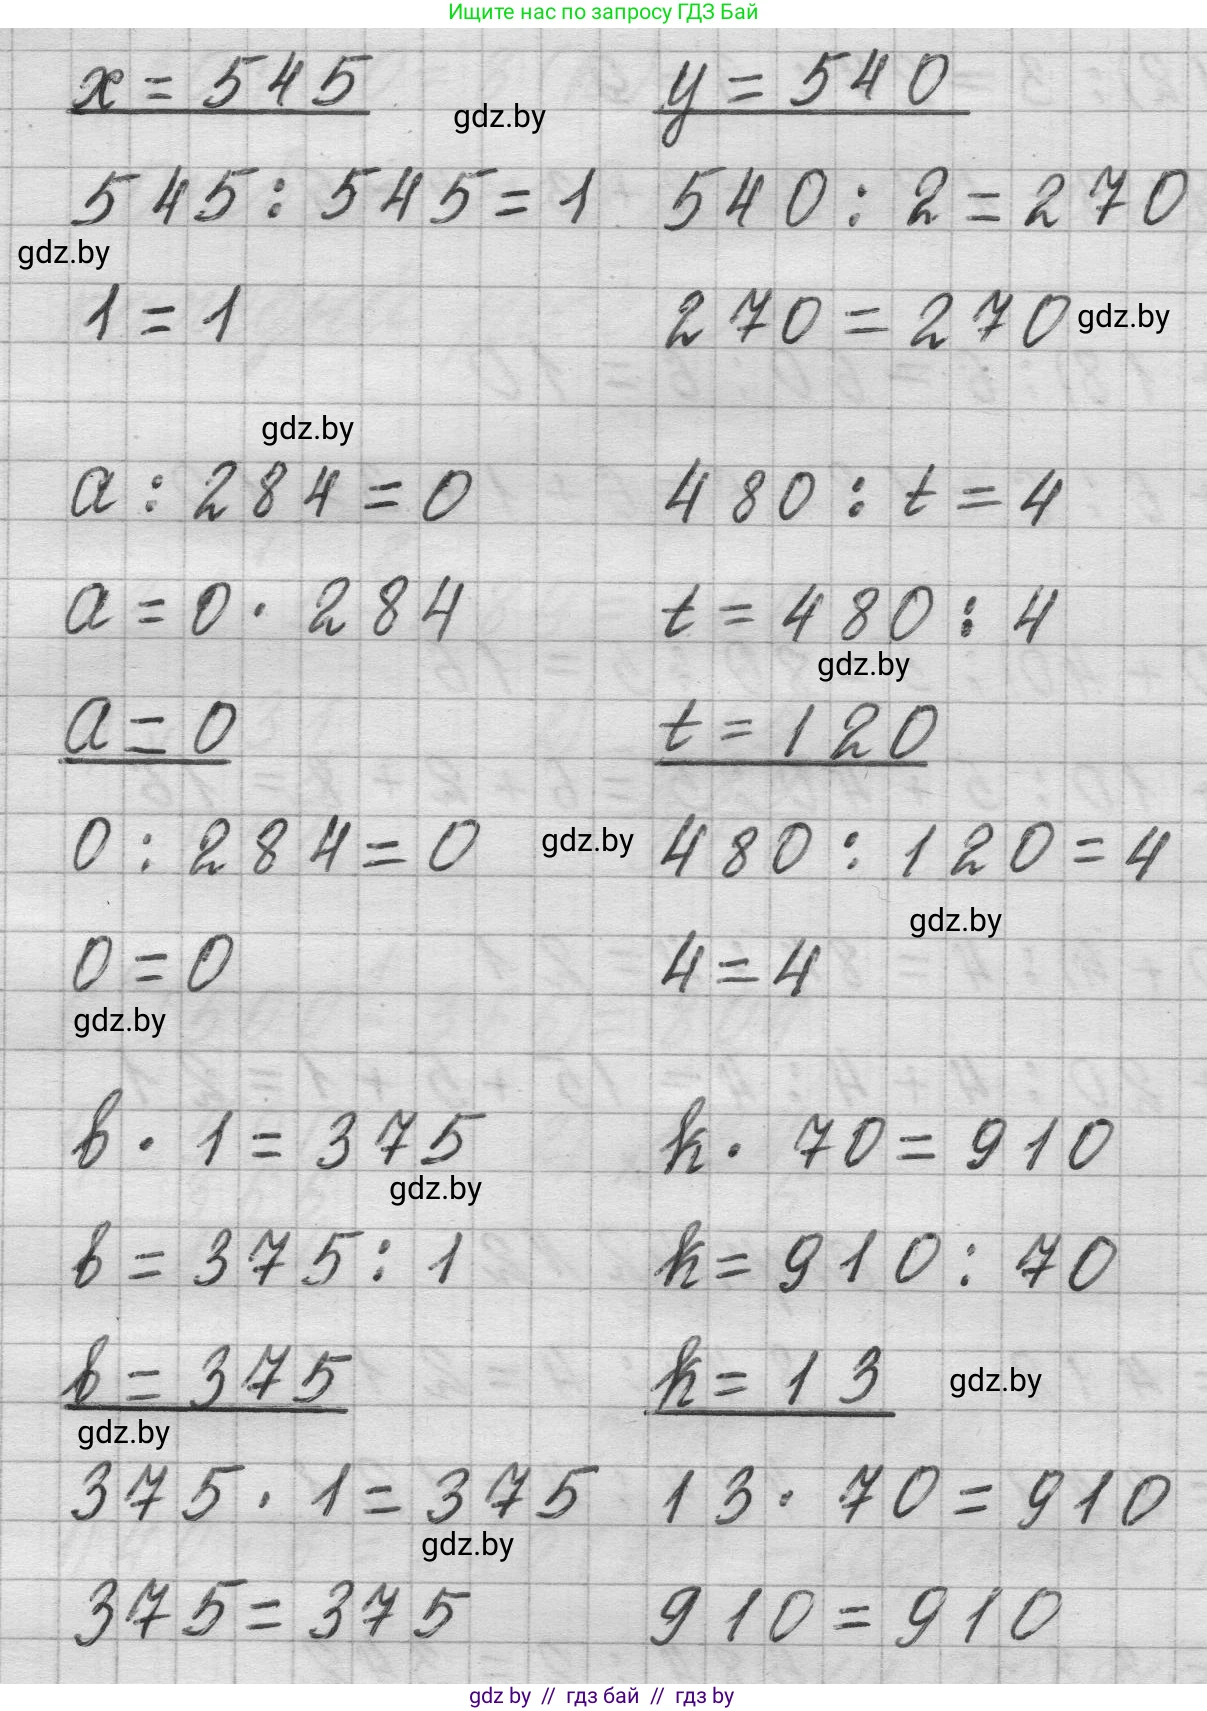 Ищите нас по запросу ГДЗ Бай
x = 545 y = 540
gdz.by
545 : 545 = 1 540 : 2 = 270
gdz.by
1 = 1 270 = 270 gdz.by
gdz.by
a : 284 = 0 480 : t = 4
a = 0 · 284 t = 480 : 4
gdz.by
a = 0 t = 120
0 : 284 = 0 gdz.by 480 : 120 = 4
gdz.by
0 = 0 4 = 4
gdz.by
b · 1 = 375 k · 70 = 910
gdz.by
b = 375 : 1 k = 910 : 70
b = 375 k = 13 gdz.by
gdz.by
375 · 1 = 375 13 · 70 = 910
gdz.by
375 = 375 910 = 910
gdz by // гдз бай // гдз by